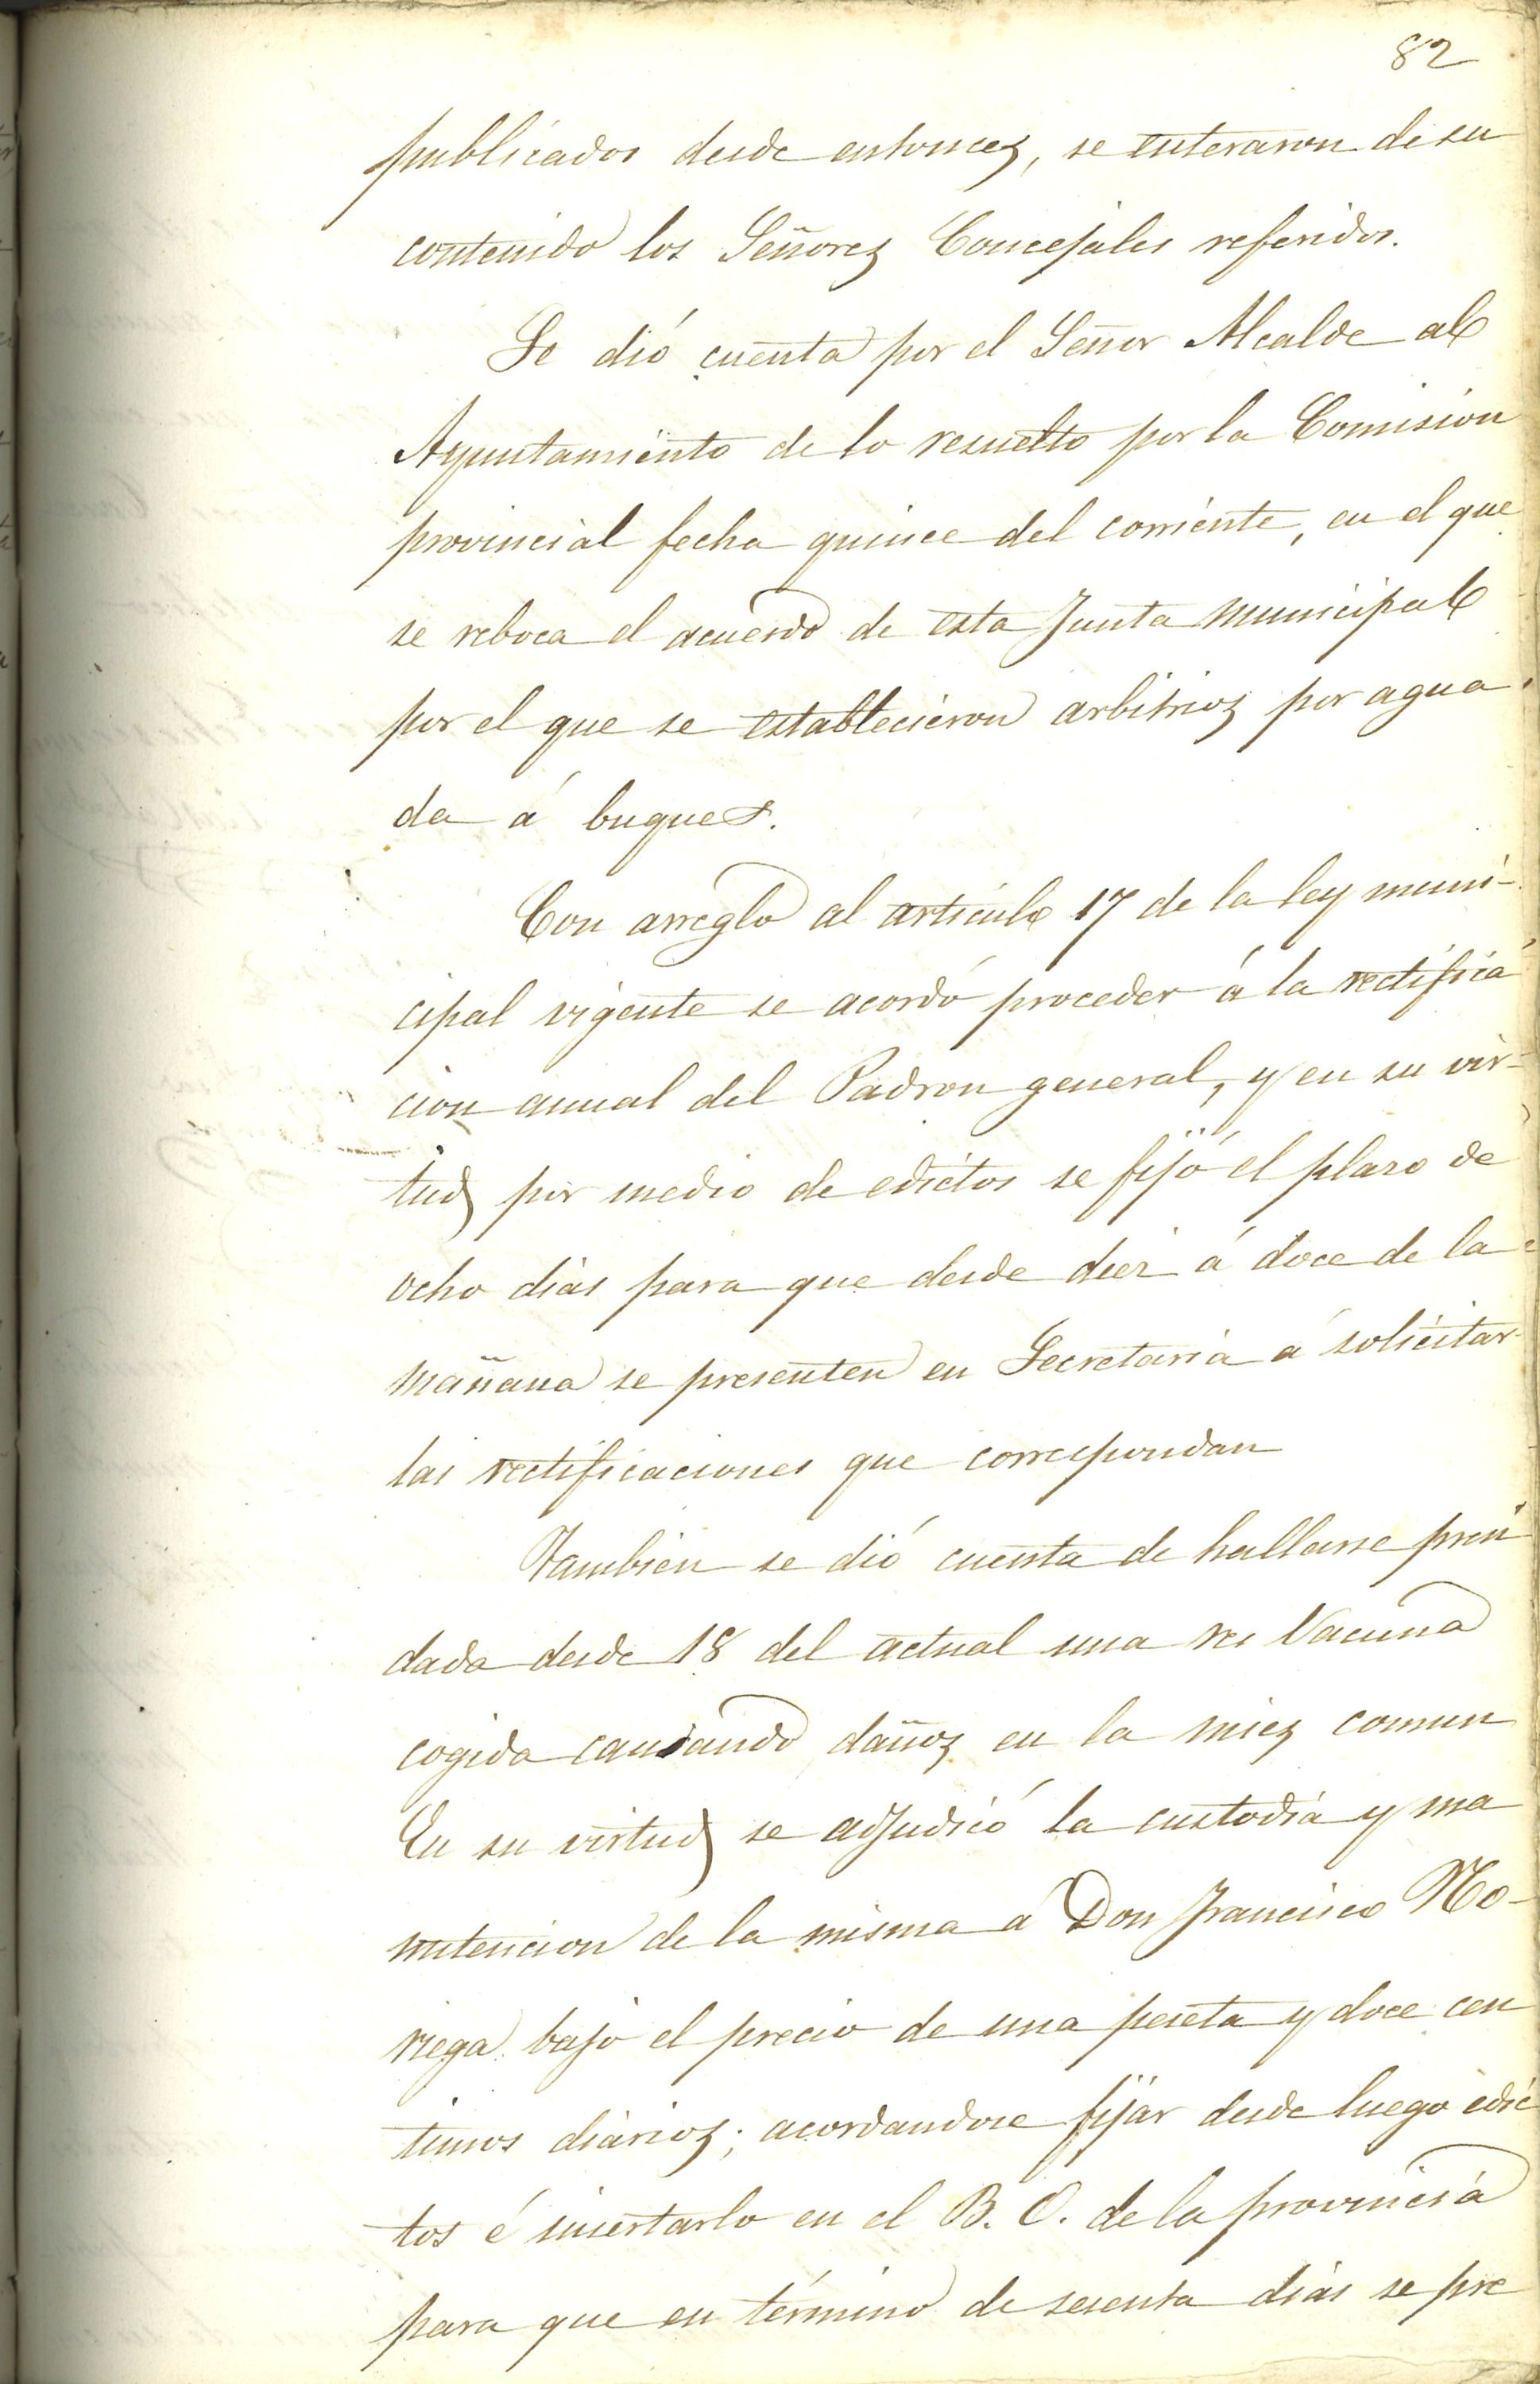 82
publicados desde entonces, se enteraron de su
contenido los Señores Concejales referidos.
Se dió cuenta por el Señor Alcalde al
Ayuntamiento de lo resuelto por la Comision
provincial fecha quince del corriente, en el que
se reboca el acuerdo de esta Junta municipal
por el que se establecieron arbitrios por agua
da á buques.
Con arreglo al articulo 17 de la ley muni-
cipal vigente se acordó proceder á la rectifica
cion anual del Padron general, y en su vir-
tud por medio de edictos se fijó el plaso de
ocho dias para que desde diez á doce de la
mañana se presenten en Secretaria á solicitar
las rectificaciones que correspondan
Tambien se dió cuenta de hallarse pren
dada desde 18 del actual una res Vacuna
cogida causando daños en la mies comun
En su virtud se adjudicó la custodia y ma
nutencion de la misma á Don Francisco No-
riega bajo el precio de una peseta y doce cen
timos diarios; acordandose fijar desde luego edic
tos é insertarlo en el B. O. de la provincia
para que en término de sesenta dias se pre